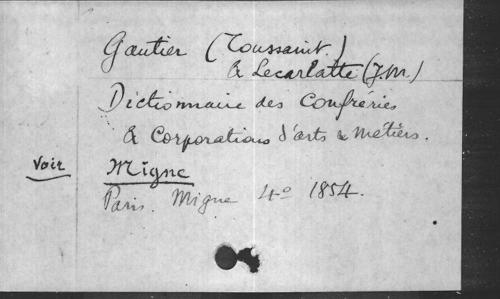 Gautier (Toussaint.)
& Lecarlatte (J.M.)
Dictionnaire des Confréries
& Corporations d'arts & métiers.
Voir Migne
Paris. Migne 4º 1854.